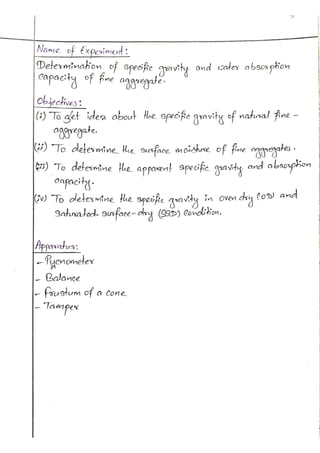 Name of Experiment:
Determination of specific gravity and water absorption
capacity of fine aggregate.
Objectives:
(i) To get idea about the specific gravity of natural fine-
aggregate.
(ii) To determine the surface moisture of fine aggregates.
(iii) To determine the apparent specific gravity and absorption
capacity.
(iv) To determine the specific gravity in oven dry (OD) and
Saturated-surface-dry (SSD) Condition.
Apparatus:
- Pycnometer
- Balance
- Frustum of a cone
- Tamper